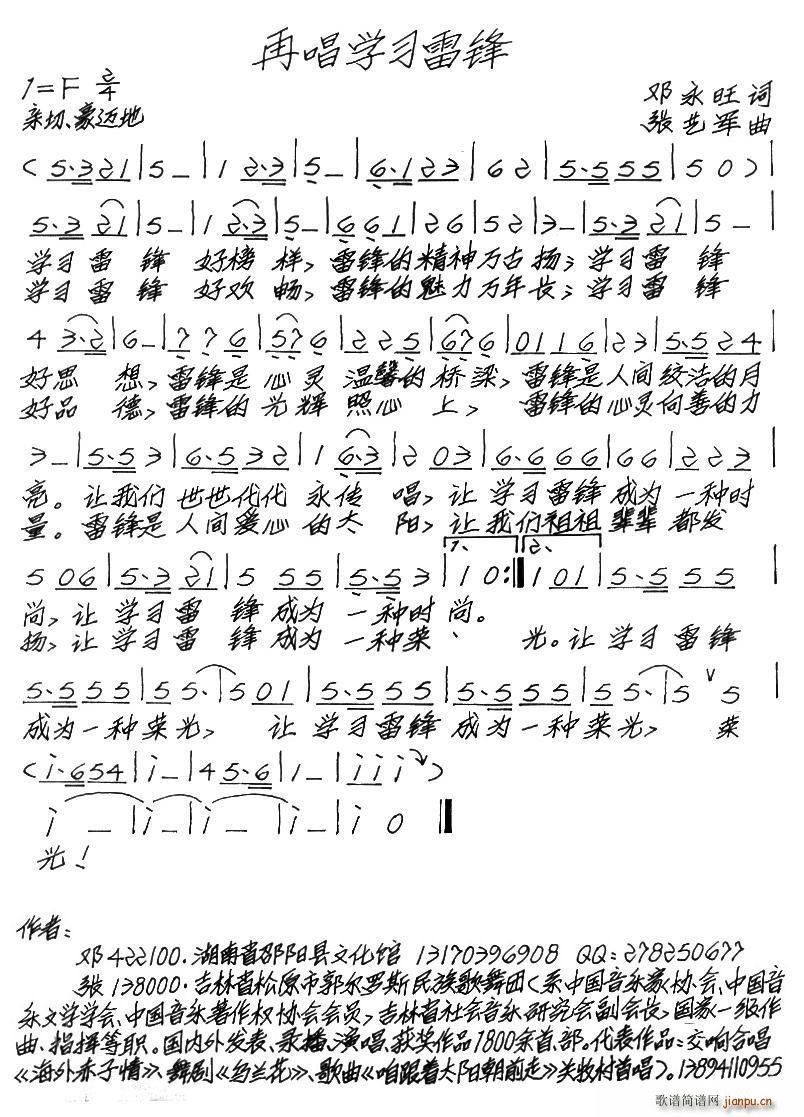 再唱学习雷锋
1=F 2/4
邓永旺词
亲切、豪迈地
张艺军曲
(5·3 21|5 —|1 2·3|5 —|6·1 23|6 2|5·5 55|5 0)|
5·3 21|5 —|1 2·3|5 —|6 6 1|2 6|5 2|3 —|5·3 21|5 —|
学习雷 锋 好榜 样, 雷锋的精神万古扬; 学习雷 锋
学习雷 锋 好欢 畅, 雷锋的魅力万年长; 学习雷 锋
4 3·2|6 —|7 7 6|5 7 6|2 2 5|6 7 6|0 1 1 6|2 3|5·5 2 4|
好思 想, 雷锋是 心灵 温馨的桥梁, 雷锋是人间皎洁的月
好品 德, 雷锋的光辉 照心 上, 雷锋的心灵向善的力
3 —|5·5 3|6·5 3 2|1 6·3|2 0 3|6·6 6 6|6 6|2 2 3|
亮。让我们 世世代代 永传 唱, 让 学习雷锋成为一种时
量。雷锋是人间爱心的太 阳, 让我们祖祖辈辈都发
5 0 6|5·3 2 1|5 5 5|5·5 3|1 0:‖1 0 1|5·5 5 5|
1、 2、
尚, 让 学习雷 锋成为 一种时尚。
扬, 让 学习雷 锋成为 一种荣、 光。让 学习雷锋
5·5 5 5|5 5·|5 0 1|5·5 5 5|5·5 5 5|5 5·|5 ∨ 5|
成为一种荣光, 让 学习雷锋成为一种荣光, 荣
(i·6 5 4|i —|4 5·6|1 —|i i i)
i —|i —|i —|i —|i 0‖
光!
作者:
邓422100·湖南省邵阳县文化馆 13170396908 QQ:278250677
张138000·吉林省松原市郭尔罗斯民族歌舞团(系中国音乐家协会、中国音
乐文学学会、中国音乐著作权协会会员,吉林省社会音乐研究会副会长,国家一级作
曲、指挥等职。国内外发表、录播、演唱、获奖作品1800余首、部。代表作品:交响合唱
《海外赤子情》、舞剧《乌兰花》、歌曲《咱跟着太阳朝前走》关牧村首唱)。13894110955
歌谱简谱网
jianpu.cn